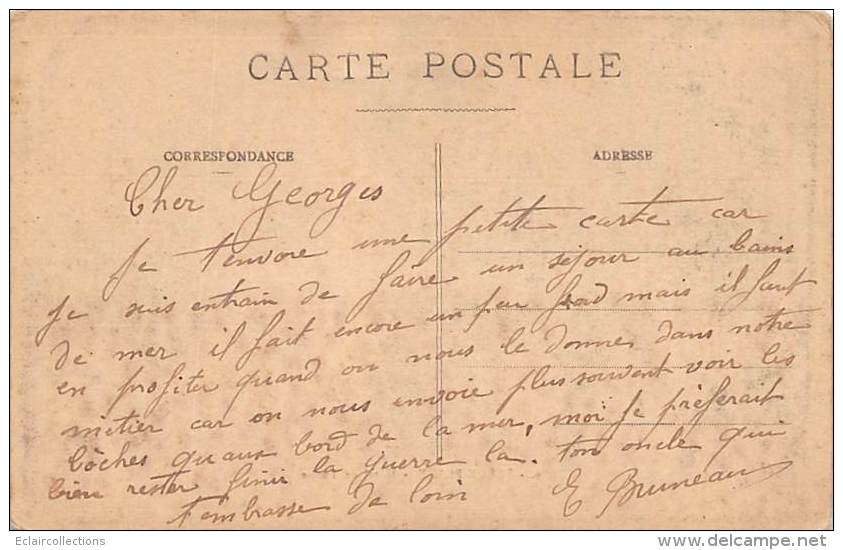 CARTE POSTALE
CORRESPONDANCE
ADRESSE
Cher Georges
Je t'envoie une petite carte car
je suis entrain de faire un séjour au bains
de mer il fait encore un peu froid mais il faut
en profiter quand on nous le donne, dans notre
métier car on nous envoie plus souvent voir les
bôches qu'aux bord de la mer, moi je prèferait
bien rester finir la guerre la. ton oncle qui
t'embrasse de loin E Bruneau
Eclaircollections
www.delcampe.net